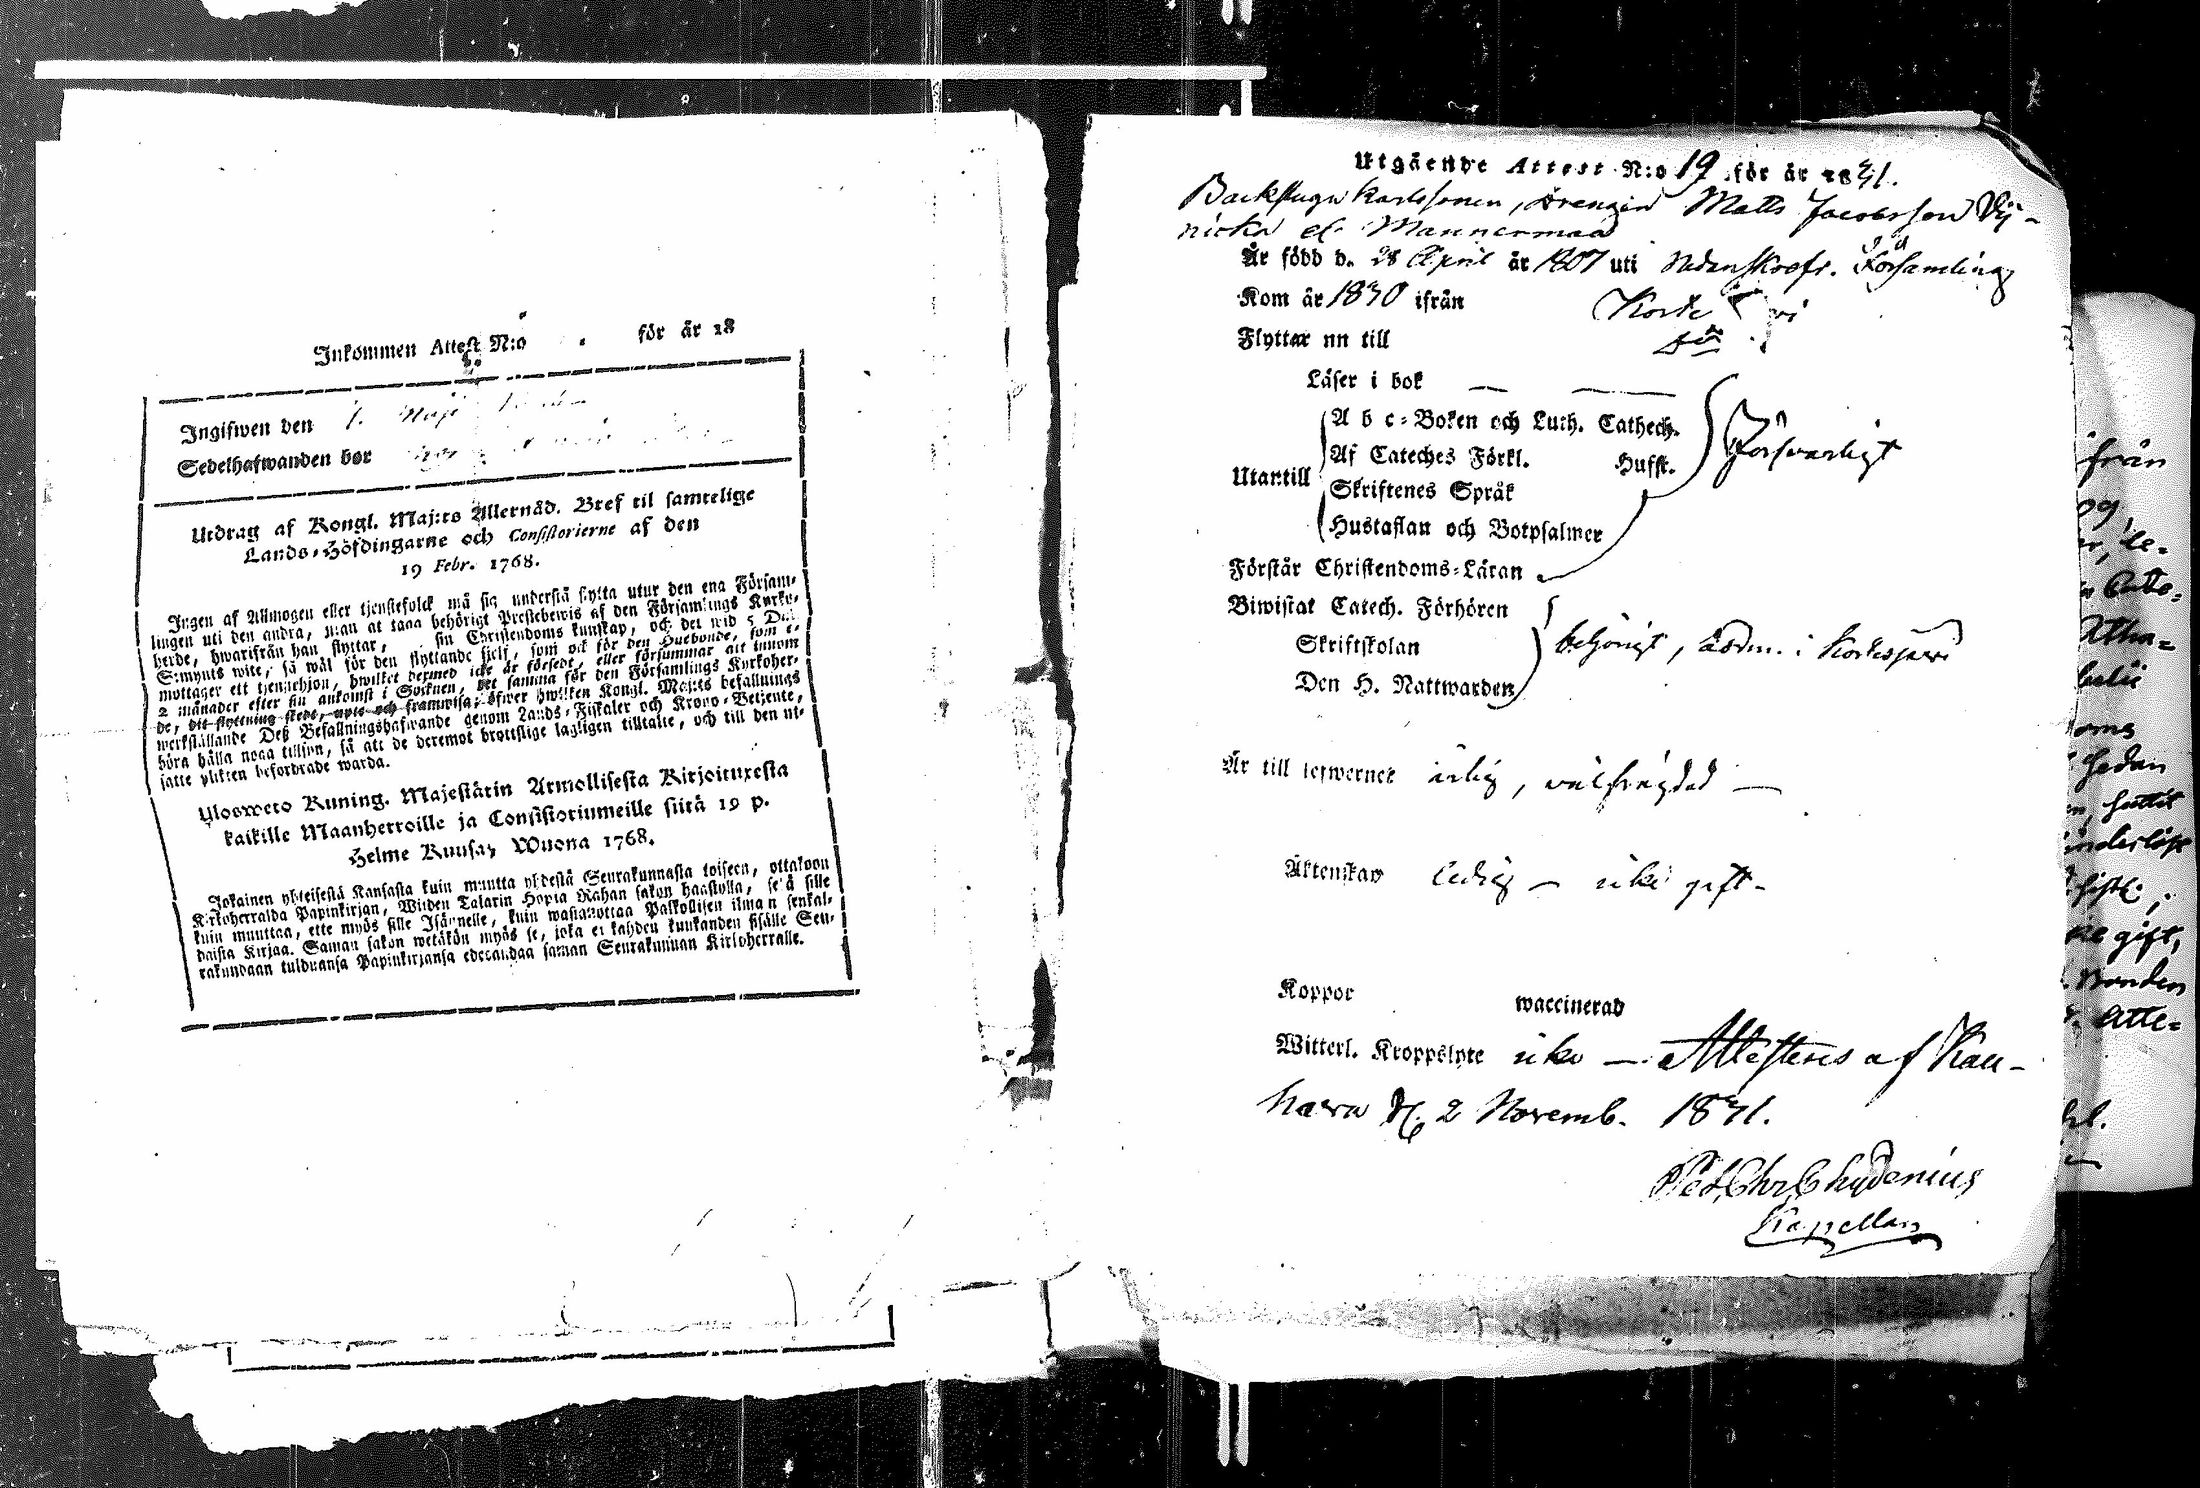 Inkommen Attest N:o för år 18
Ingifwen den 1. Maji
Sedelhafwanden bor
Utdrag af Kongl. Maj:ts Allernåd. Bref til samtelige
Lands-Höfdingarne och Consistorierne af den
19 Febr. 1768.
Ingen af Allmogen eller tjenstefolck må sig understå flytta utur den ena Försam-
lingen uti den andra, utan at taga behörigt Prestebewis af den Församlings Kyrko-
herde, hwarifrån han flyttar, sin Christendoms kunskap, och det wid 5 Dal.
S:mynts wite, så wäl för den flyttande sjelf, som ock för den Husbonde, som e-
mottager ett tjenstehjon, hwilket dermed icke är försedt, eller försummar att innom
2 månader efter sin ankomst i Socknen, det samma för den Församlings Kyrkoher-
de, dit flyttning skedt, upte och framwisa; öfwer hwilken Kongl. Maj:ts befallnings
werkställande Deß Befallningshafwande genom Lands-Fiskaler och Krono-Betjente,
böra hålla noga tillsyn, så att de deremot brottslige lagligen tilltalte, och till den ut-
satte plikten befordrade warda.
Ulosweto Kuning. Majestätin Armollisesta Kirjoituxesta
kaikille Maanherroille ja Consistoriumeille siitä 19 p.
Helme Kuusa, Wuona 1768.
Jokainen yhteisestä Kansasta kuin muutta yhdestä Seurakunnasta toiseen, ottakoon
Kirkoherralda Papinkirjan, Wiiden Talarin Hopia Rahan sakon haastolla, se'ä sille
kuin muuttaa, ette myös sille Isännelle, kuin wastanottaa Palkollisen ilman senkal-
daista Kirjaa. Saman sakon wetäkön myös se, joka ei kahden kuukauden sisälle Seu-
rakundaan tulduansa Papinkirjansa edesandaa saman Seurakunnan Kirkoherralle.
Utgående Attest N:o 19 för år 1831.
Backstugu karlssonen, drengen Matts Jacobsson Vy-
nicka el. Mannermaa
Är född d. 28 April år 1807 uti Nedanskrefv. Församling
Kom år 1830 ifrån Korte
Flyttar nu till
Läser i bok — —
A b c-Boken och Luth. Cathech.
Af Cateches Förkl. Hufst.
Utantill
Skriftenes Språk
Hustaflan och Botpsalmer
Försvarligt
Förstår Christendoms-Läran
Biwistat Catech. Förhören
Skriftskolan
Den H. Nattwarden
behörigt, i Kortesjärvi
Är till lefwernet ärlig, välfrägdad —
Äktenskap ledig — icke gift.
Koppor waccinerad
Witterl. Kroppslyte icke — Attesteras af Kau-
hava d. 2 Novemb. 1831.
Pet. Chr. Chydenius
Kapellan
ifrån
Atte-
sedan
gift,
Bonden
Atte-